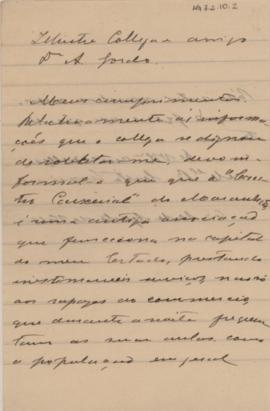 1432.10.2
Illustre Collega e amigo
Dr A Gordo
Meus cumprimentos
Relativamente ás informa-
ções que o collega se dignou
de solicitar-me, devo in-
formal-o que que o "Cen-
tro Caixeiral" do Maranhão
é uma antiga associação
que funcciona na capital
do meu Estado, prestando
inestimaveis serviços, não só
aos rapazes do commercio,
que durante a noite frequen-
tam as suas aulas, como
a população em geral